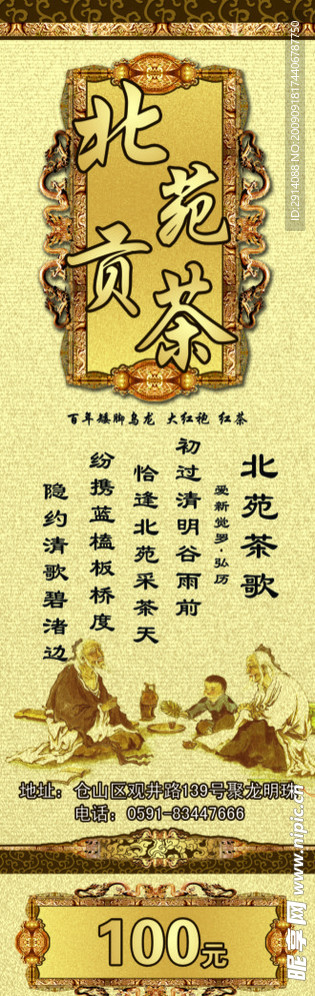 北苑贡茶
百年矮脚乌龙 大红袍 红茶
北苑茶歌
爱新觉罗·弘历
初过清明谷雨前
恰逢北苑采茶天
纷携蓝榼板桥度
隐约清歌碧渚边
地址:仓山区观井路139号聚龙明珠
电话:0591-83447666
100元
ID:2914088 NO:20090918174406787750
昵享网 www.nipic.cn